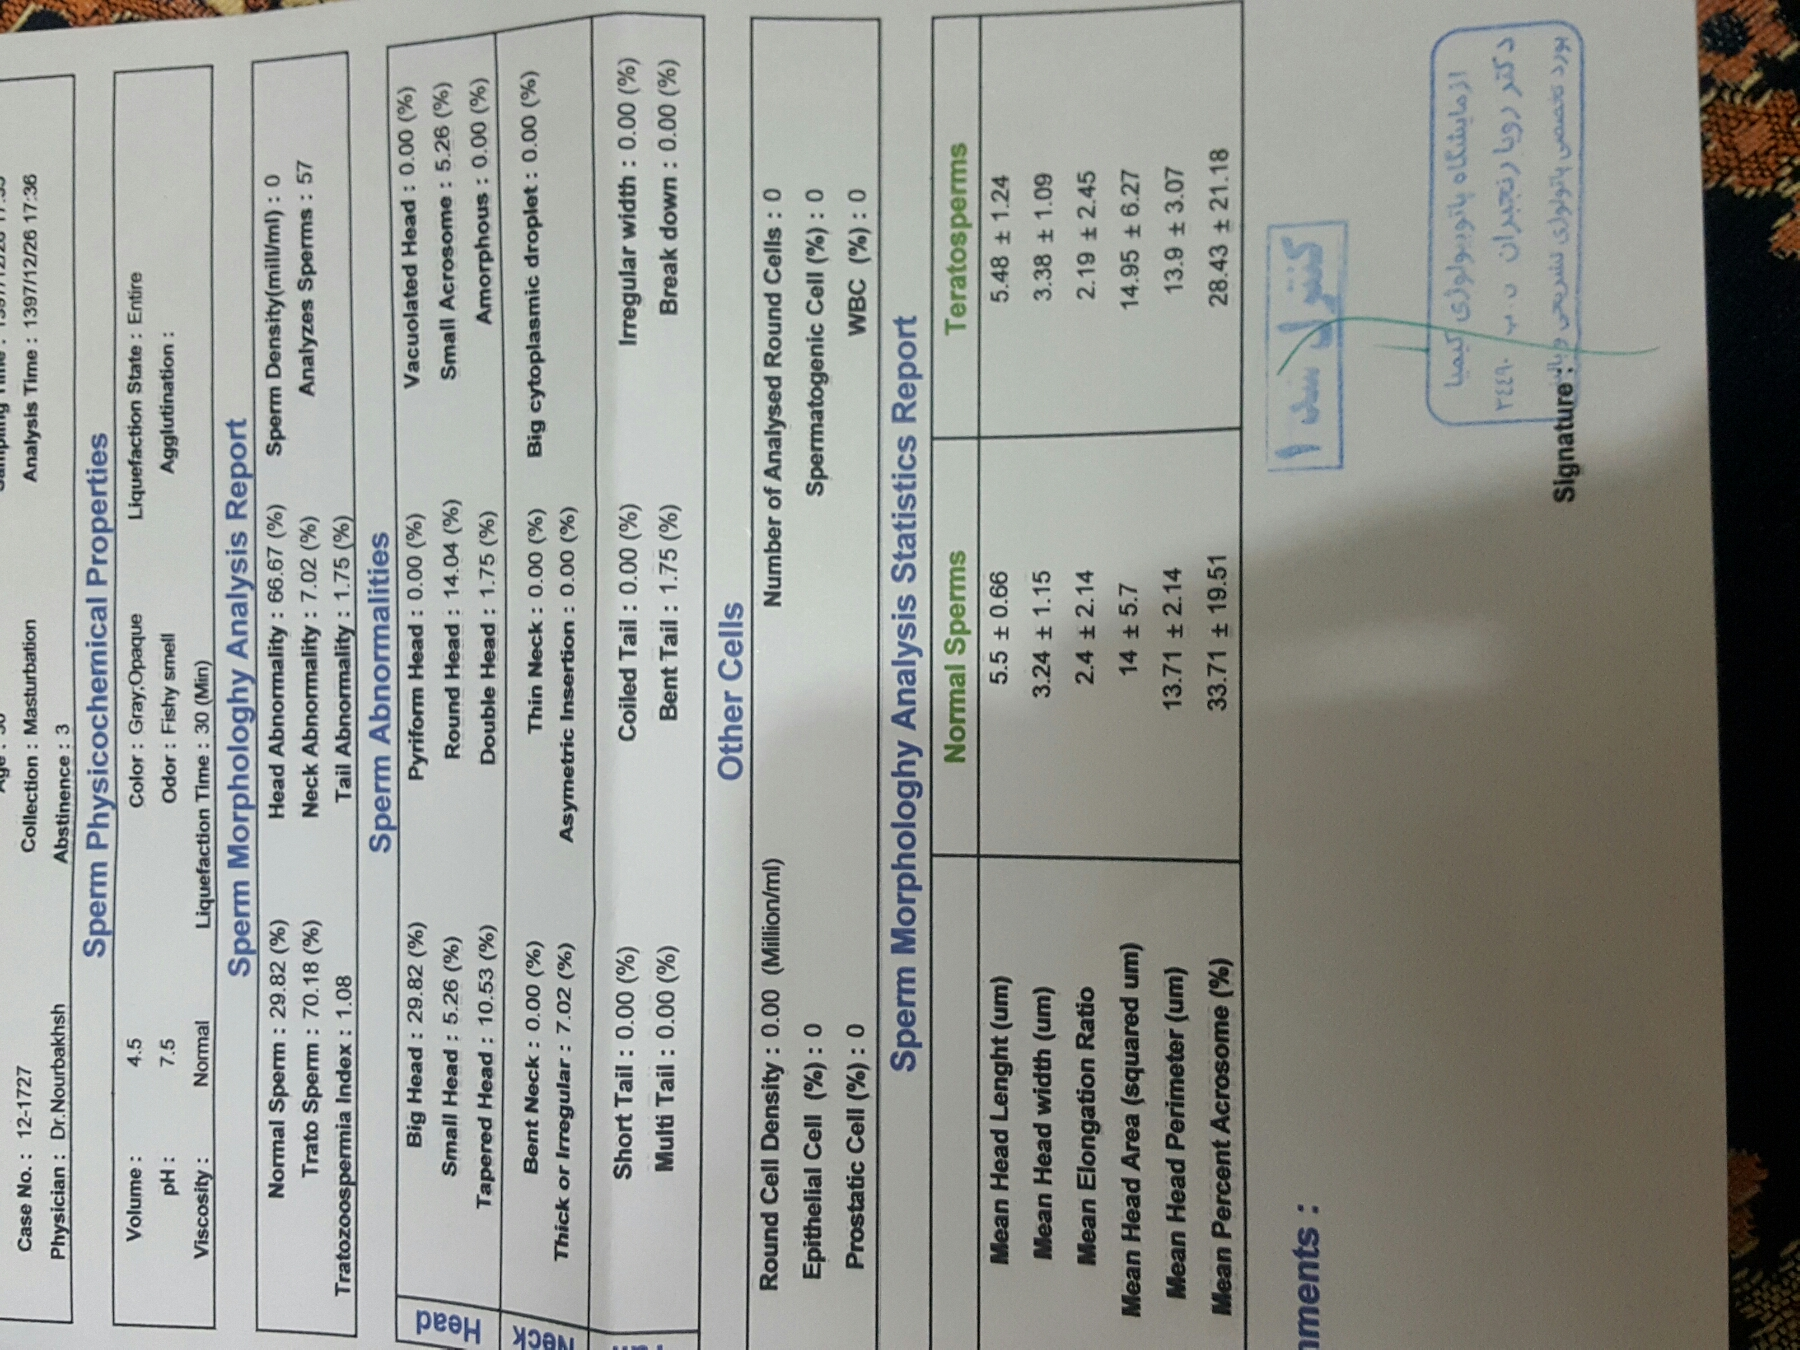 Case No. : 12-1727
Collection : Masturbation
Analysis Time : 1397/12/26 17:36
Physician : Dr.Nourbakhsh
Abstinence : 3
Sperm Physicochemical Properties
Volume : 4.5
Color : Gray,Opaque
Liquefaction State : Entire
pH : 7.5
Odor : Fishy smell
Agglutination :
Viscosity : Normal
Liquefaction Time : 30 (Min)
Sperm Morphologhy Analysis Report
Normal Sperm : 29.82 (%)
Head Abnormality : 66.67 (%)
Sperm Density(mill/ml) : 0
Trato Sperm : 70.18 (%)
Neck Abnormality : 7.02 (%)
Analyzes Sperms : 57
Tratozoospermia Index : 1.08
Tail Abnormality : 1.75 (%)
Sperm Abnormalities
Head
Big Head : 29.82 (%)
Pyriform Head : 0.00 (%)
Vacuolated Head : 0.00 (%)
Small Head : 5.26 (%)
Round Head : 14.04 (%)
Small Acrosome : 5.26 (%)
Tapered Head : 10.53 (%)
Double Head : 1.75 (%)
Amorphous : 0.00 (%)
Neck
Bent Neck : 0.00 (%)
Thin Neck : 0.00 (%)
Big cytoplasmic droplet : 0.00 (%)
Thick or Irregular : 7.02 (%)
Asymetric Insertion : 0.00 (%)
Short Tail : 0.00 (%)
Coiled Tail : 0.00 (%)
Irregular width : 0.00 (%)
Multi Tail : 0.00 (%)
Bent Tail : 1.75 (%)
Break down : 0.00 (%)
Other Cells
Round Cell Density : 0.00 (Million/ml)
Number of Analysed Round Cells : 0
Epithelial Cell (%) : 0
Spermatogenic Cell (%) : 0
Prostatic Cell (%) : 0
WBC (%) : 0
Sperm Morphologhy Analysis Statistics Report
Normal Sperms
Teratosperms
Mean Head Lenght (um) 5.5 ± 0.66 5.48 ± 1.24
Mean Head width (um) 3.24 ± 1.15 3.38 ± 1.09
Mean Elongation Ratio 2.4 ± 2.14 2.19 ± 2.45
Mean Head Area (squared um) 14 ± 5.7 14.95 ± 6.27
Mean Head Perimeter (um) 13.71 ± 2.14 13.9 ± 3.07
Mean Percent Acrosome (%) 33.71 ± 19.51 28.43 ± 21.18
کنترل شد ۱
آزمایشگاه پاتوبیولوژی کیمیا
دکتر رویا رنجبران ن.پ ۲٤٤٩۰
بورد تخصصی پاتولوژی تشریحی و بالینی
Signature :